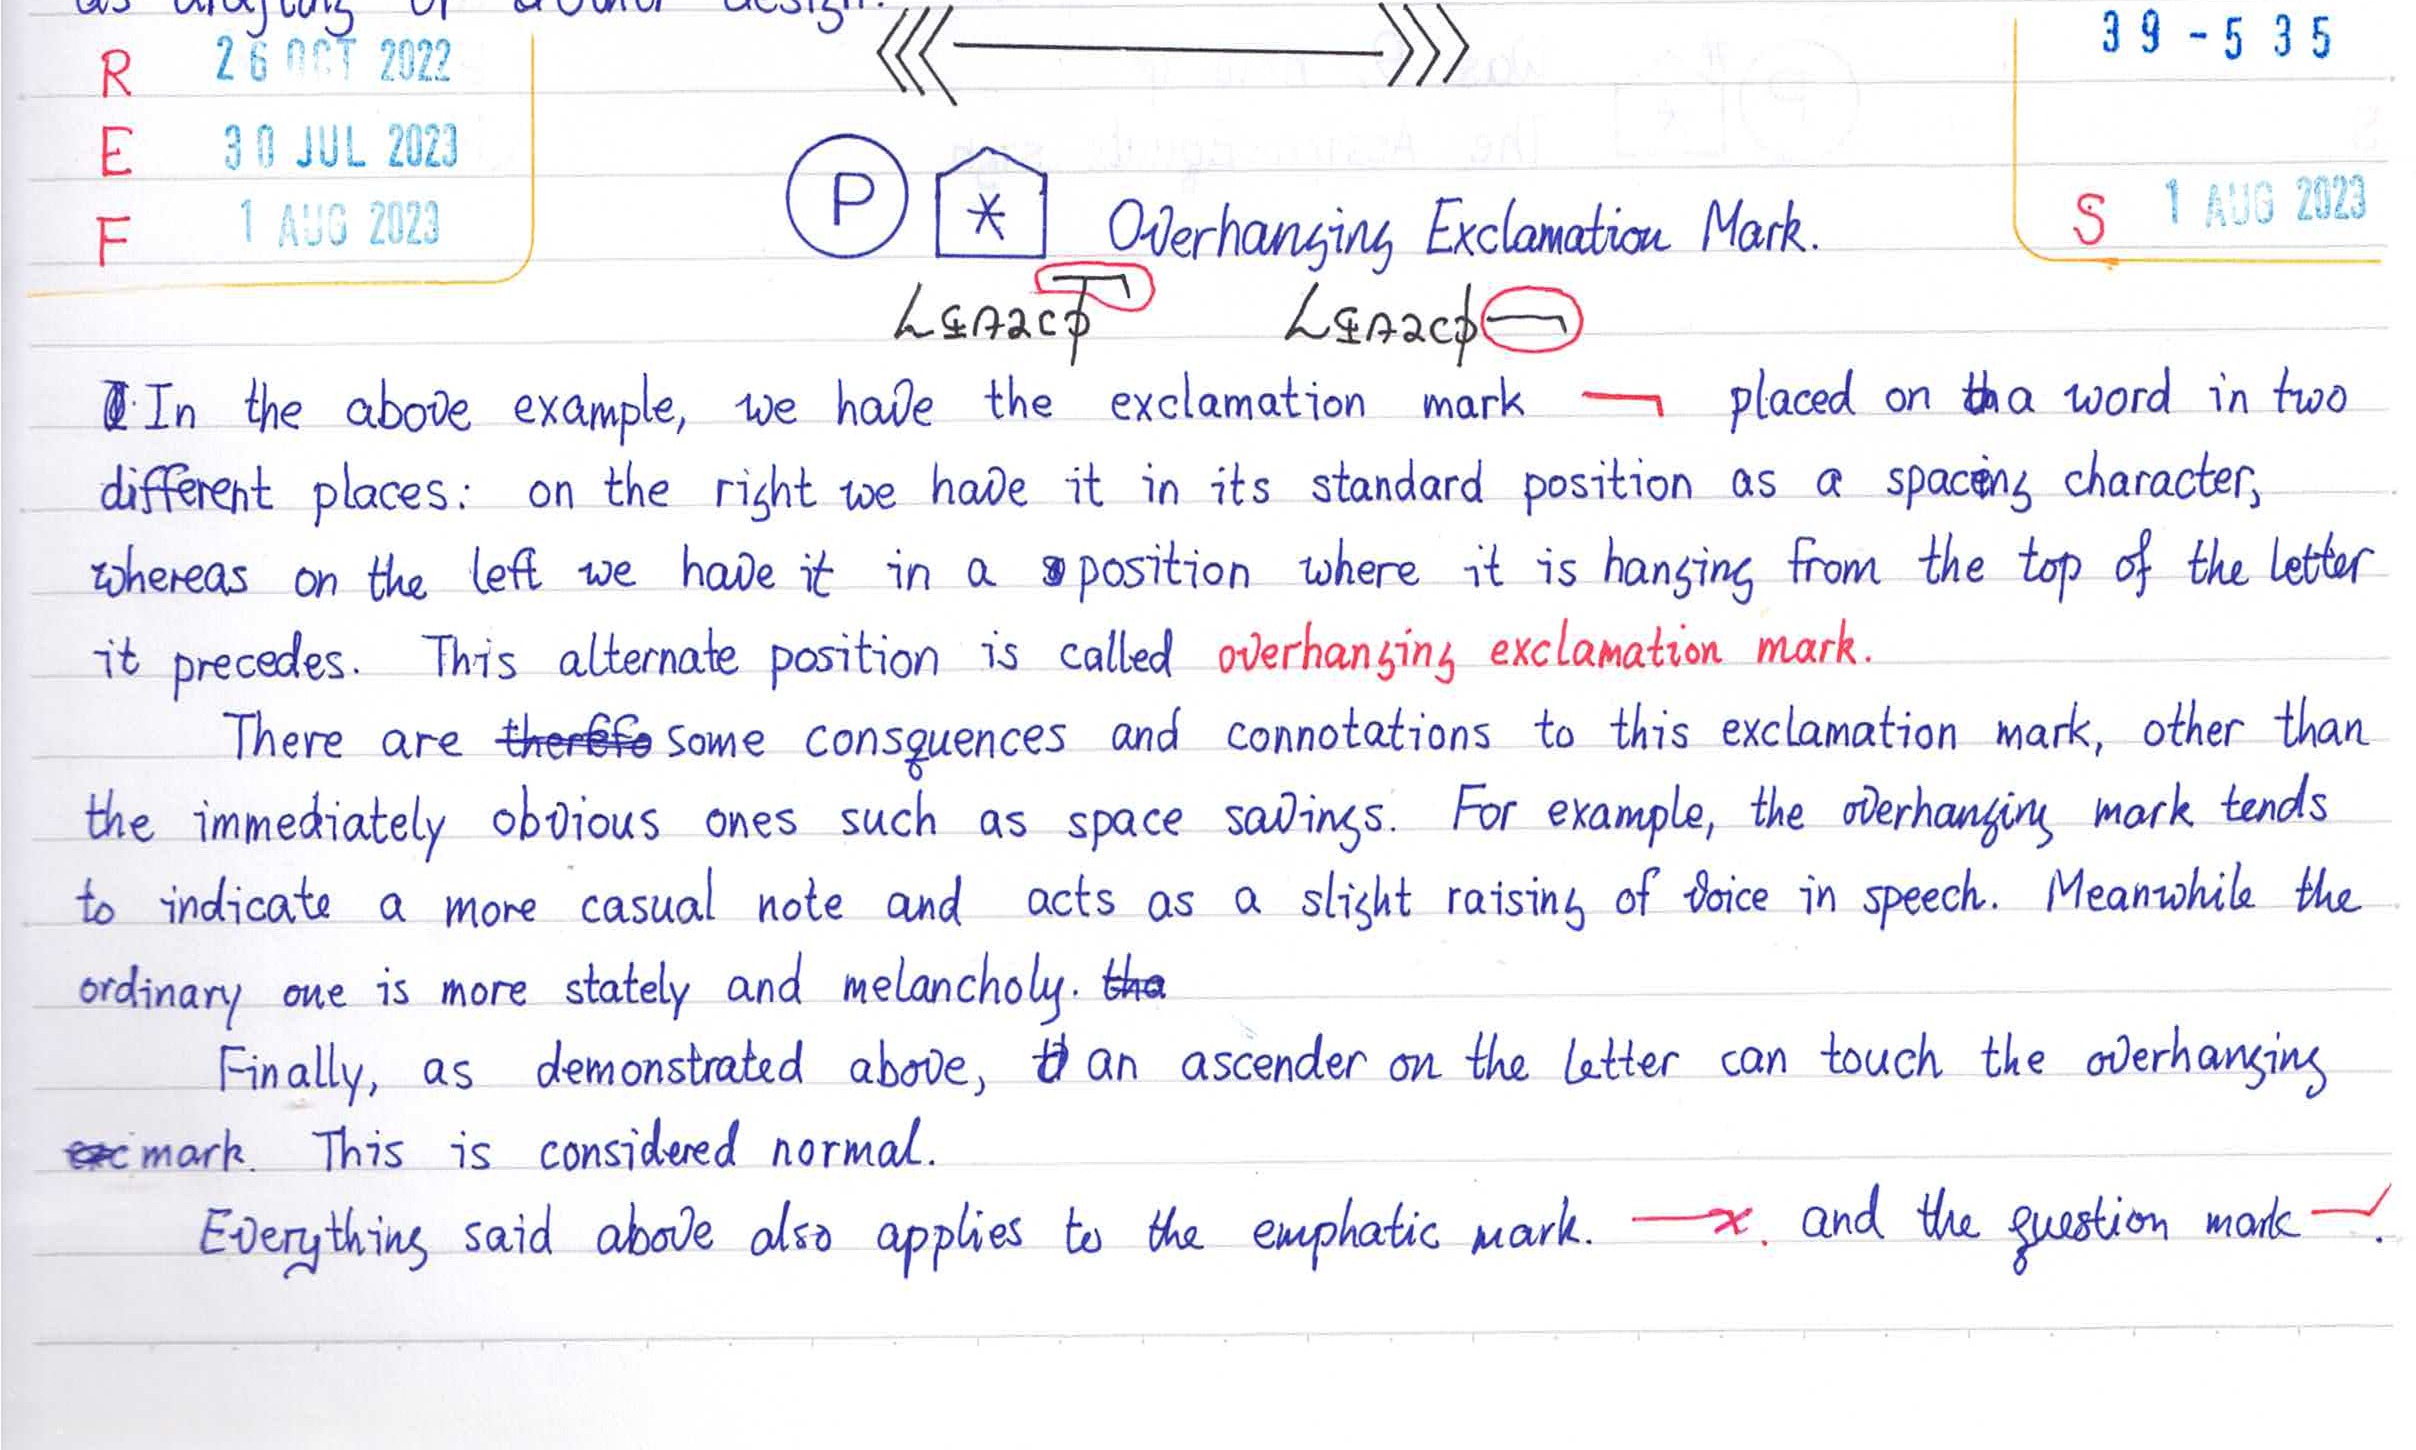 as drafting of another design.
R 26 OCT 2022
39-535
E 30 JUL 2023
F 1 AUG 2023
P * Overhanging Exclamation Mark.
S 1 AUG 2023
In the above example, we have the exclamation mark placed on a word in two
different places: on the right we have it in its standard position as a spacing character,
whereas on the left we have it in a position where it is hanging from the top of the letter
it precedes. This alternate position is called overhanging exclamation mark.
There are some consquences and connotations to this exclamation mark, other than
the immediately obvious ones such as space savings. For example, the overhanging mark tends
to indicate a more casual note and acts as a slight raising of voice in speech. Meanwhile the
ordinary one is more stately and melancholy. the
Finally, as demonstrated above, an ascender on the letter can touch the overhanging
mark. This is considered normal.
Everything said above also applies to the emphatic mark. and the question mark .